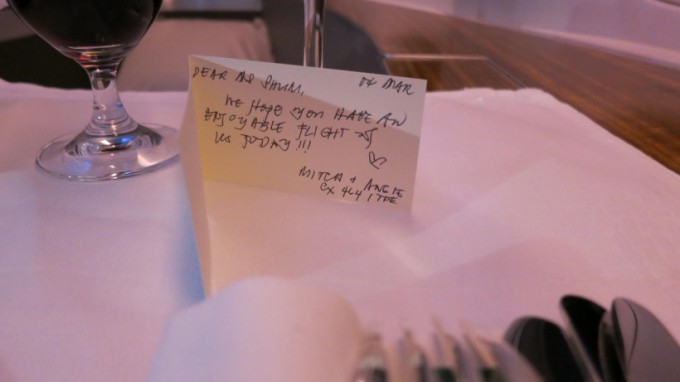 DEAR MS SHUM, 04 MAR
WE HOPE YOU HAVE AN
ENJOYABLE FLIGHT
US TODAY!!!
MITCH + ANGIE
CX 464 / TPE